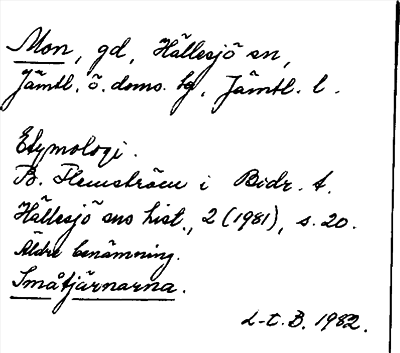 Mon, gd, Hällesjö sn,
Jämtl. ö. doms. tg, Jämtl. l.
Etymologi.
B. Flemström i Bidr. t.
Hällesjö sns hist., 2 (1981), s. 20.
Äldre benämning.
Småtjärnarna.
L-t. B. 1982.